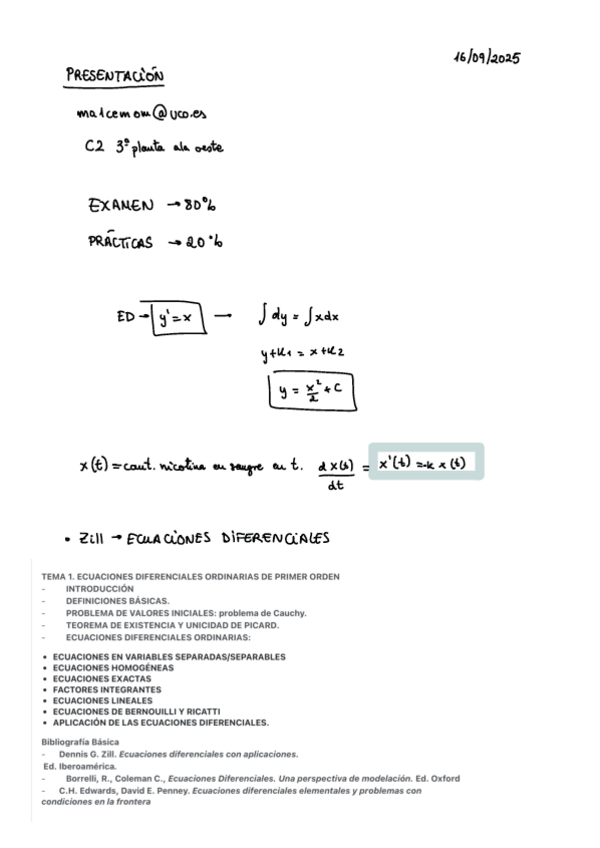 16/09/2025
PRESENTACIÓN
ma1cemom@uco.es
C2 3ª planta ala oeste
EXAMEN → 80%
PRÁCTICAS → 20%
ED → y' = x → ∫dy = ∫xdx
y+k1 = x+k2
y = x²/2 + C
x(t) = cant. nicotina en sangre en t. dx(t)/dt = x'(t) = -k x(t)
• Zill → ECUACIONES DIFERENCIALES
TEMA 1. ECUACIONES DIFERENCIALES ORDINARIAS DE PRIMER ORDEN
- INTRODUCCIÓN
- DEFINICIONES BÁSICAS.
- PROBLEMA DE VALORES INICIALES: problema de Cauchy.
- TEOREMA DE EXISTENCIA Y UNICIDAD DE PICARD.
- ECUACIONES DIFERENCIALES ORDINARIAS:
• ECUACIONES EN VARIABLES SEPARADAS/SEPARABLES
• ECUACIONES HOMOGÉNEAS
• ECUACIONES EXACTAS
• FACTORES INTEGRANTES
• ECUACIONES LINEALES
• ECUACIONES DE BERNOUILLI Y RICATTI
• APLICACIÓN DE LAS ECUACIONES DIFERENCIALES.
Bibliografía Básica
- Dennis G. Zill. Ecuaciones diferenciales con aplicaciones.
Ed. Iberoamérica.
- Borrelli, R., Coleman C., Ecuaciones Diferenciales. Una perspectiva de modelación. Ed. Oxford
- C.H. Edwards, David E. Penney. Ecuaciones diferenciales elementales y problemas con
condiciones en la frontera